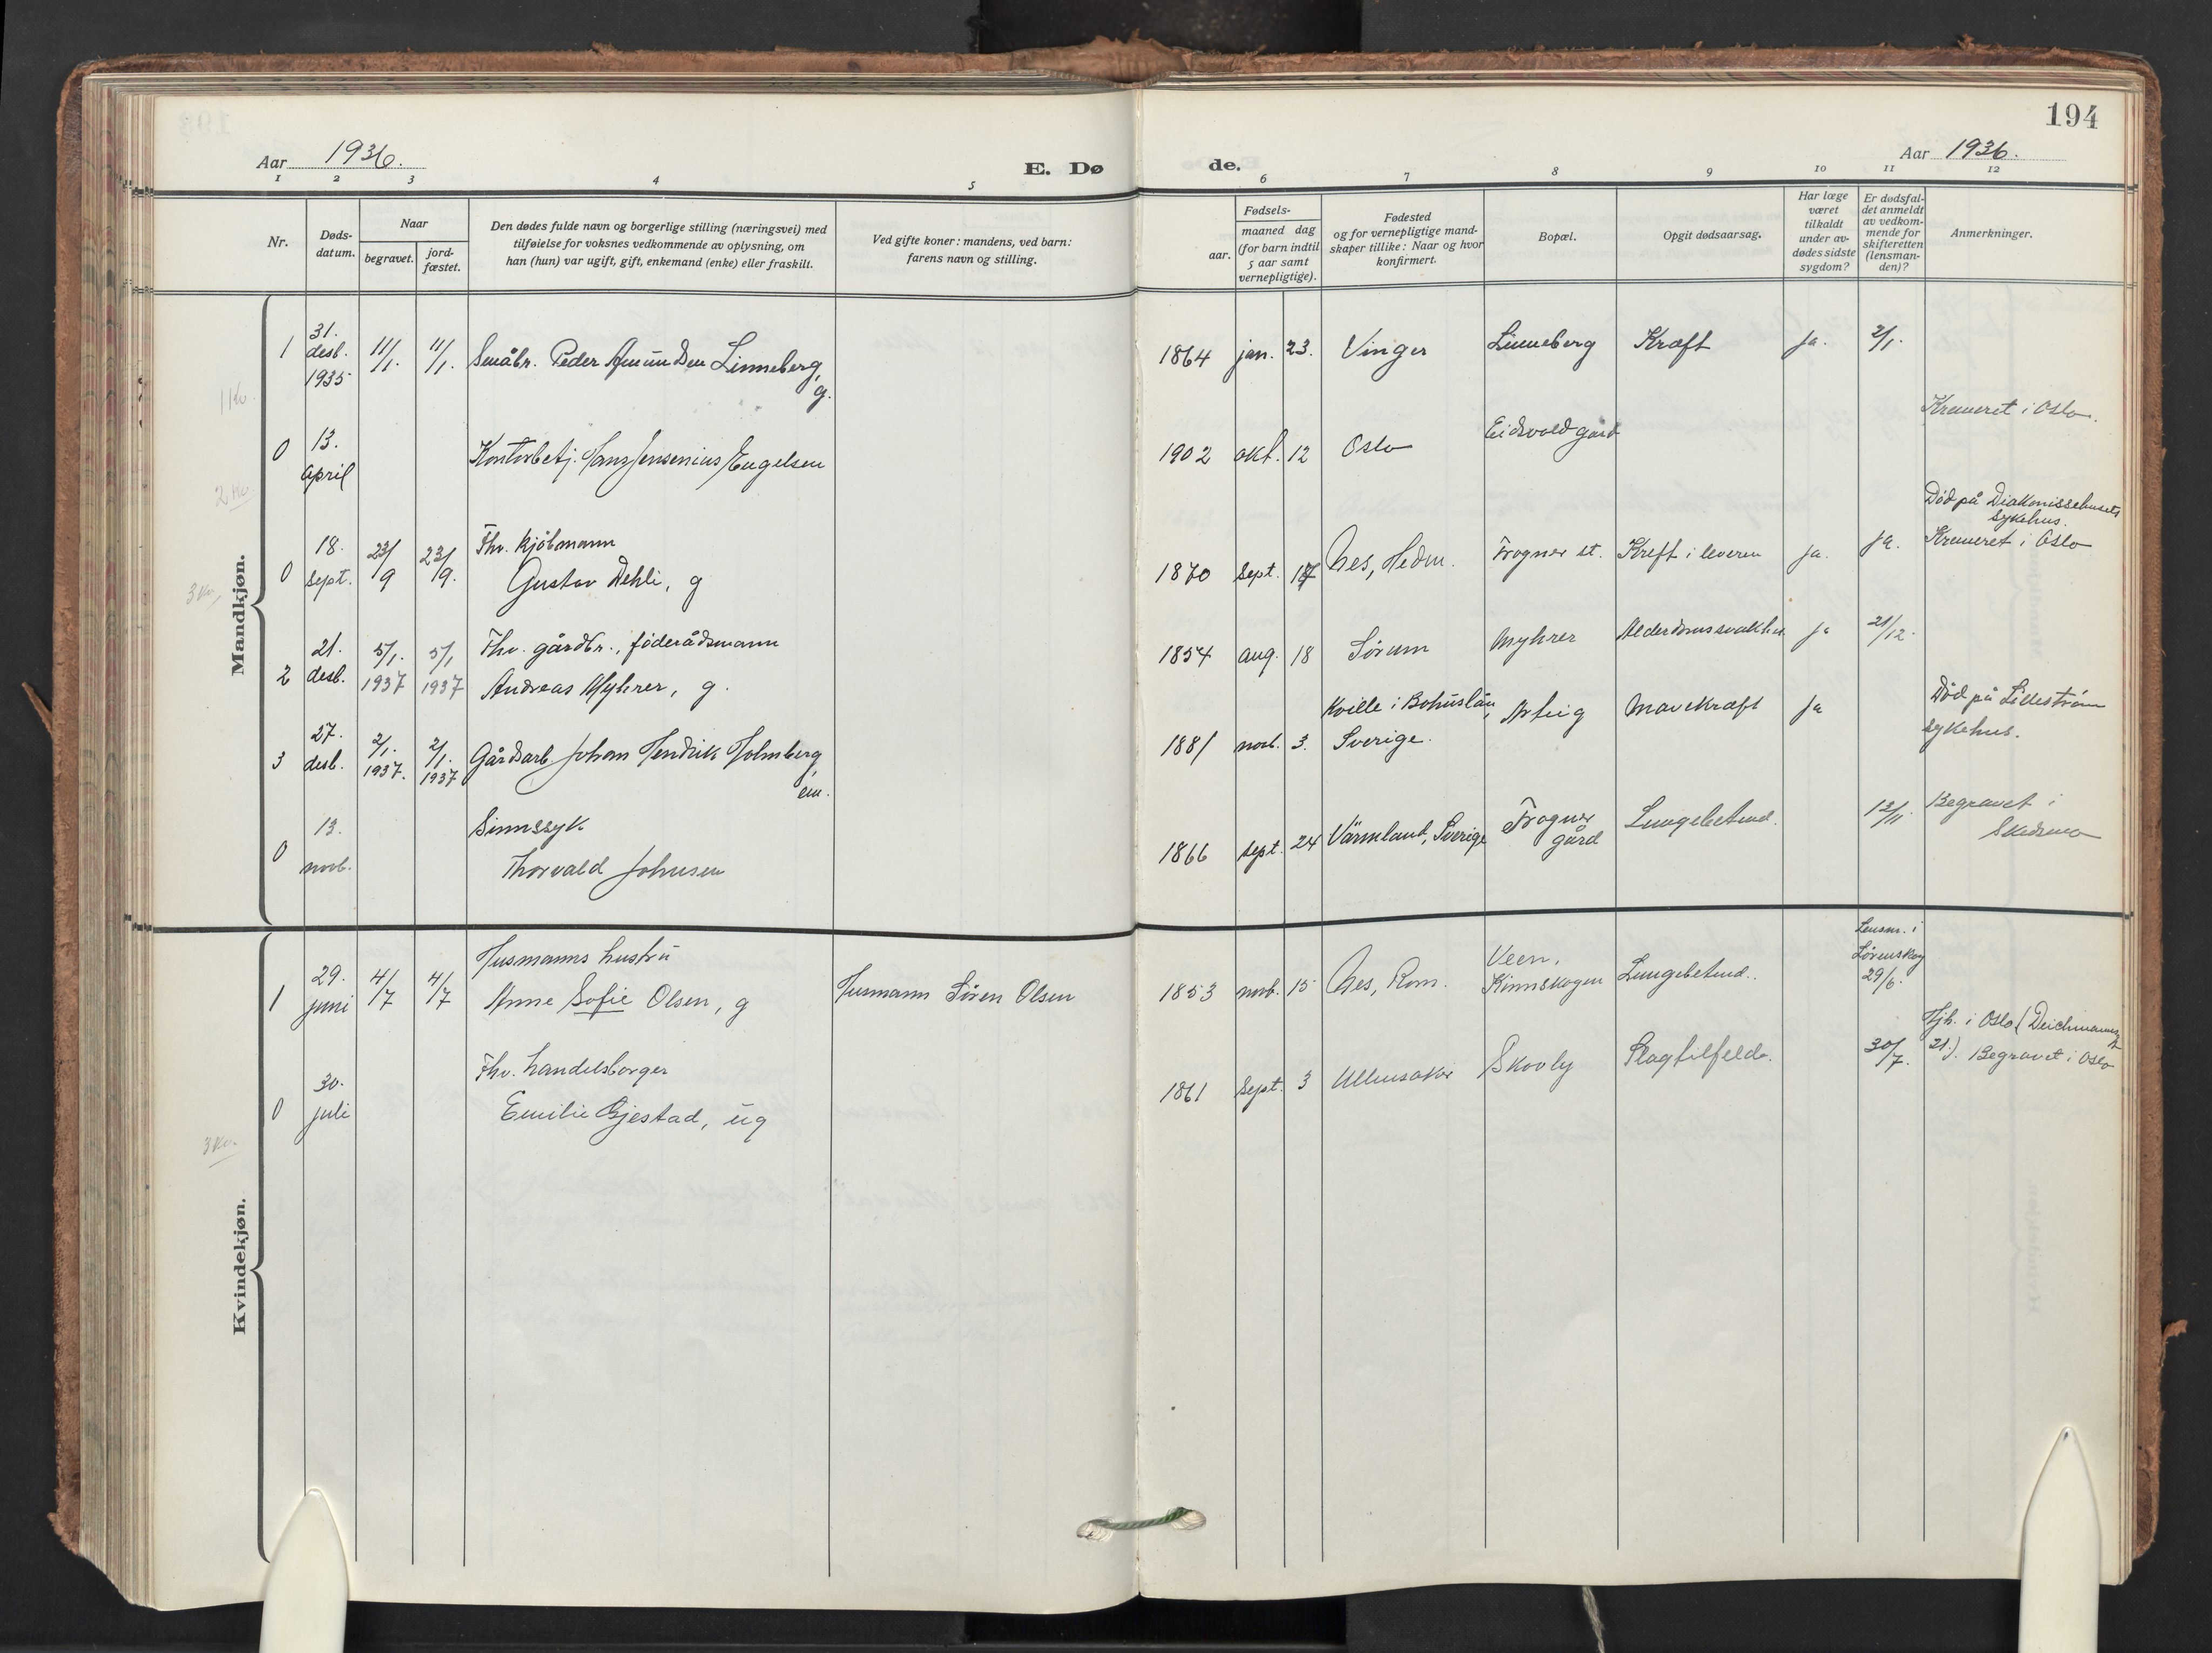 194
Aar 1936.
E. Døde.
Aar 1936.
1 2 3 4 5 6 7 8 9 10 11 12
Nr.
Dødsdatum.
Naar
begravet.
jordfæstet.
Den dødes fulde navn og borgerlige stilling (næringsvei) med
tilføielse for voksnes vedkommende av oplysning, om
han (hun) var ugift, gift, enkemand (enke) eller fraskilt.
Ved gifte koner: mandens, ved barn:
farens navn og stilling.
Fødsels-
aar.
maaned dag
(for barn indtil
5 aar samt
vernepligtige).
Fødested
og for vernepligtige mand-
skaper tillike: Naar og hvor
konfirmert.
Bopæl.
Opgit dødsaarsag.
Har læge
været
tilkaldt
under av-
dødes sidste
sygdom?
Er dødsfal-
det anmeldt
av vedkom-
mende for
skifteretten
(lensman-
den)?
Anmerkninger.
Mandkjøn.
1 31. desb. 1935 11/1. 11/1. Småbr. Peder Amundsen Linneberg, g. 1864 jan. 23. Vinger Linneberg Kræft ja. 2/1.
1 Kv.
0 13. april Kontorbetj. Hans Jensenius Engelsen 1902 okt. 12 Oslo Eidsvold gård Kremeret i Oslo.
2 Kv.
0 18. sept. 23/9 23/9. Fhv. kjøbmann
Gustav Dehli, g 1870 sept. 17 Nes, Hedm. Frogner st. Kreft i leveren ja. ja. Død på Diakonissehusets
sykehus.
Kremeret i Oslo
3 Kv.
2 21. desb. 5/1. 1937 5/1 1937 Fhv. gårdbr., føderådsmann
Andreas Myhrer, g. 1854 aug. 18 Sørum Myhrer Alderdomssvakhet ja 21/12.
3 27. desb. 2/1. 1937. 2/1. 1937 Gårdsarb. Johan Hendrik Holmberg, em. 1881 novb. 3. Kville i Bohuslän,
Sverige. Mavekræft ja Død på Lilleström
sykehus.
0 13. novb. Sinnssyk
Thorvald Johnsen 1866 sept. 24 Värmland, Sverige Frogner
gård Lungebetend. 12/11. Begravet i
Skedsmo
Kvindekjøn.
1 29. juni 4/7 4/7 Husmanns hustru
Anne Sofie Olsen, g Husmann Søren Olsen 1853 novb. 15 Nes, Rom. Veen,
Kinnskogen Lungebetend. Lensm. i
Lørenskog
29/6.
0 30. juli Fhv. handelsborger
Emilie Gjestad, ug 1861 sept. 3 Ullensaker Skovly Slagtilfelde. 30/7. Hjh. i Oslo (Deichmannsgt
21.). Begravet i Oslo
3 Kv.